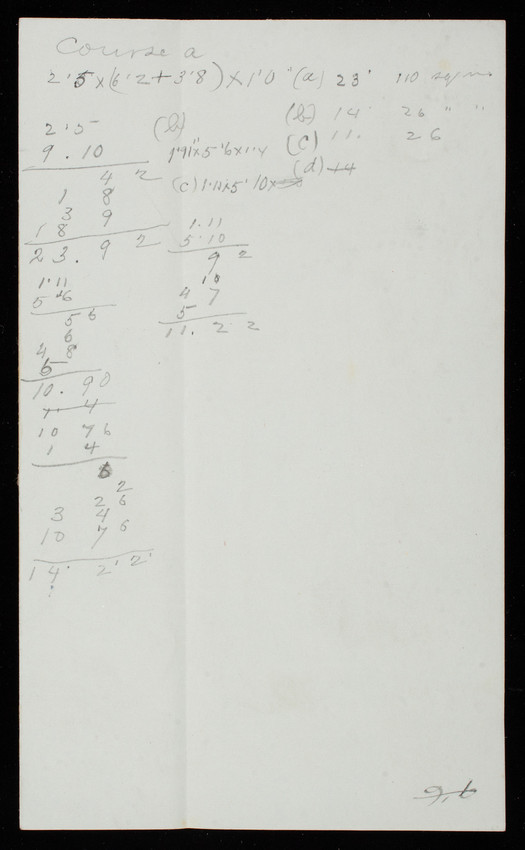 Course a
2'5 x (6'2 + 3'8) x 1'0" (a) 23' 110 sq ins
(b) 14' 26 " "
(c) 11. 26
(d) 14
2'5
9.10
4 2
1 8
3 9
18
23. 9 2
1.11
5 6
5 6
6
4 8
5
10. 90
4
10 76
1 4
2
2 6
3 4
10 7 6
14. 2' 2'
(b)
1'11" x 5'6 x 1'4
(c) 1'11 x 5'10 x
1.11
5.10
9 2
10
4 7
5
11. 2 2
9,6